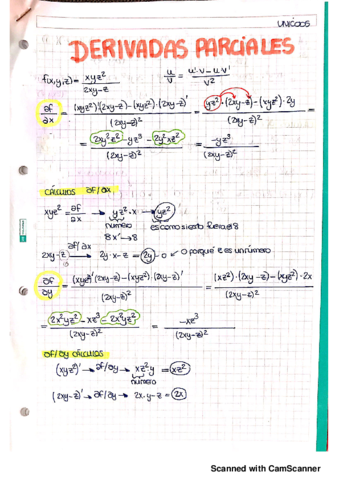 UNICOOS
DERIVADAS PARCIALES
f(x,y,z) = xyz² / 2xy-z    u/v = u'·v - u·v' / v²
∂f/∂x = (xyz²)'·(2xy-z) - (xyz²)·(2xy-z)' / (2xy-z)² = yz²·(2xy-z) - (xyz²)·2y / (2xy-z)² =
= 2xy²z² - yz³ - 2y²xz² / (2xy-z)² = -yz³ / (2xy-z)²
CÁLCULOS ∂f/∂x
xyz² = ∂f/∂x → yz²·x → yz²
número    es como si esto fuera 8
8x' → 8
∂f/∂x
2xy-z → 2y·x-z = 2y - 0 ← 0 porque z es un número
∂f/∂y = (xyz²)'(2xy-z) - (xyz²)·(2xy-z)' / (2xy-z)² = (xz²)·(2xy-z) - (xyz²)·2x / (2xy-z)²
= 2x²yz² - xz³ - 2x²yz² / (2xy-z)² = -xz³ / (2xy-z)²
∂f/∂y CÁLCULOS
(xyz²)' → ∂f/∂y → xz²y = xz²
número
(2xy-z)' → ∂f/∂y → 2x·y-z = 2x
Scanned with CamScanner